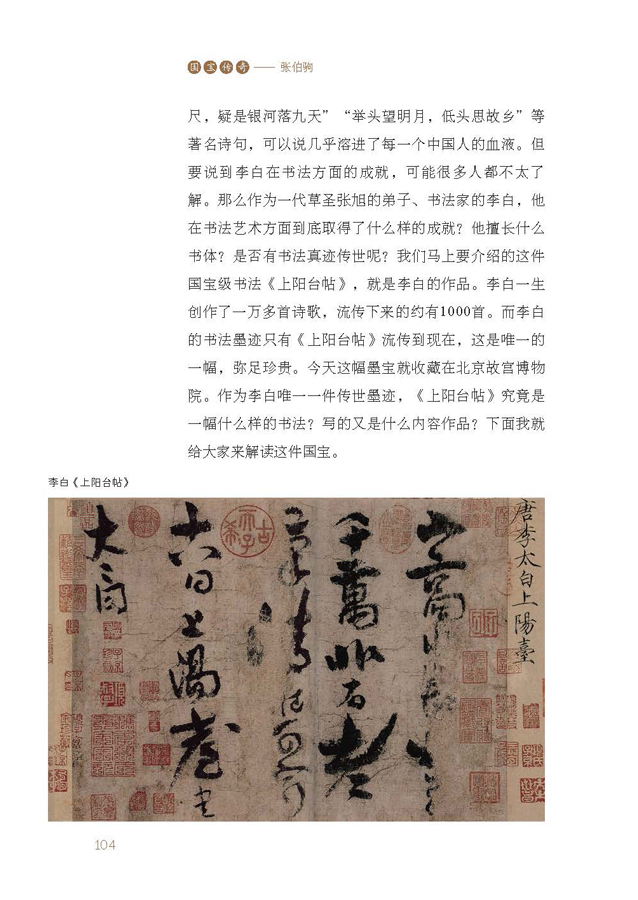 国宝传奇 —— 张伯驹
尺，疑是银河落九天”“举头望明月，低头思故乡”等
著名诗句，可以说几乎溶进了每一个中国人的血液。但
要说到李白在书法方面的成就，可能很多人都不太了
解。那么作为一代草圣张旭的弟子、书法家的李白，他
在书法艺术方面到底取得了什么样的成就？他擅长什么
书体？是否有书法真迹传世呢？我们马上要介绍的这件
国宝级书法《上阳台帖》，就是李白的作品。李白一生
创作了一万多首诗歌，流传下来的约有1000首。而李白
的书法墨迹只有《上阳台帖》流传到现在，这是唯一的
一幅，弥足珍贵。今天这幅墨宝就收藏在北京故宫博物
院。作为李白唯一一件传世墨迹，《上阳台帖》究竟是
一幅什么样的书法？写的又是什么内容作品？下面我就
给大家来解读这件国宝。
李白《上阳台帖》
唐李太白上陽臺
山高水長
千萬非有老
筆清壯可
十八日上陽臺書
太白
104